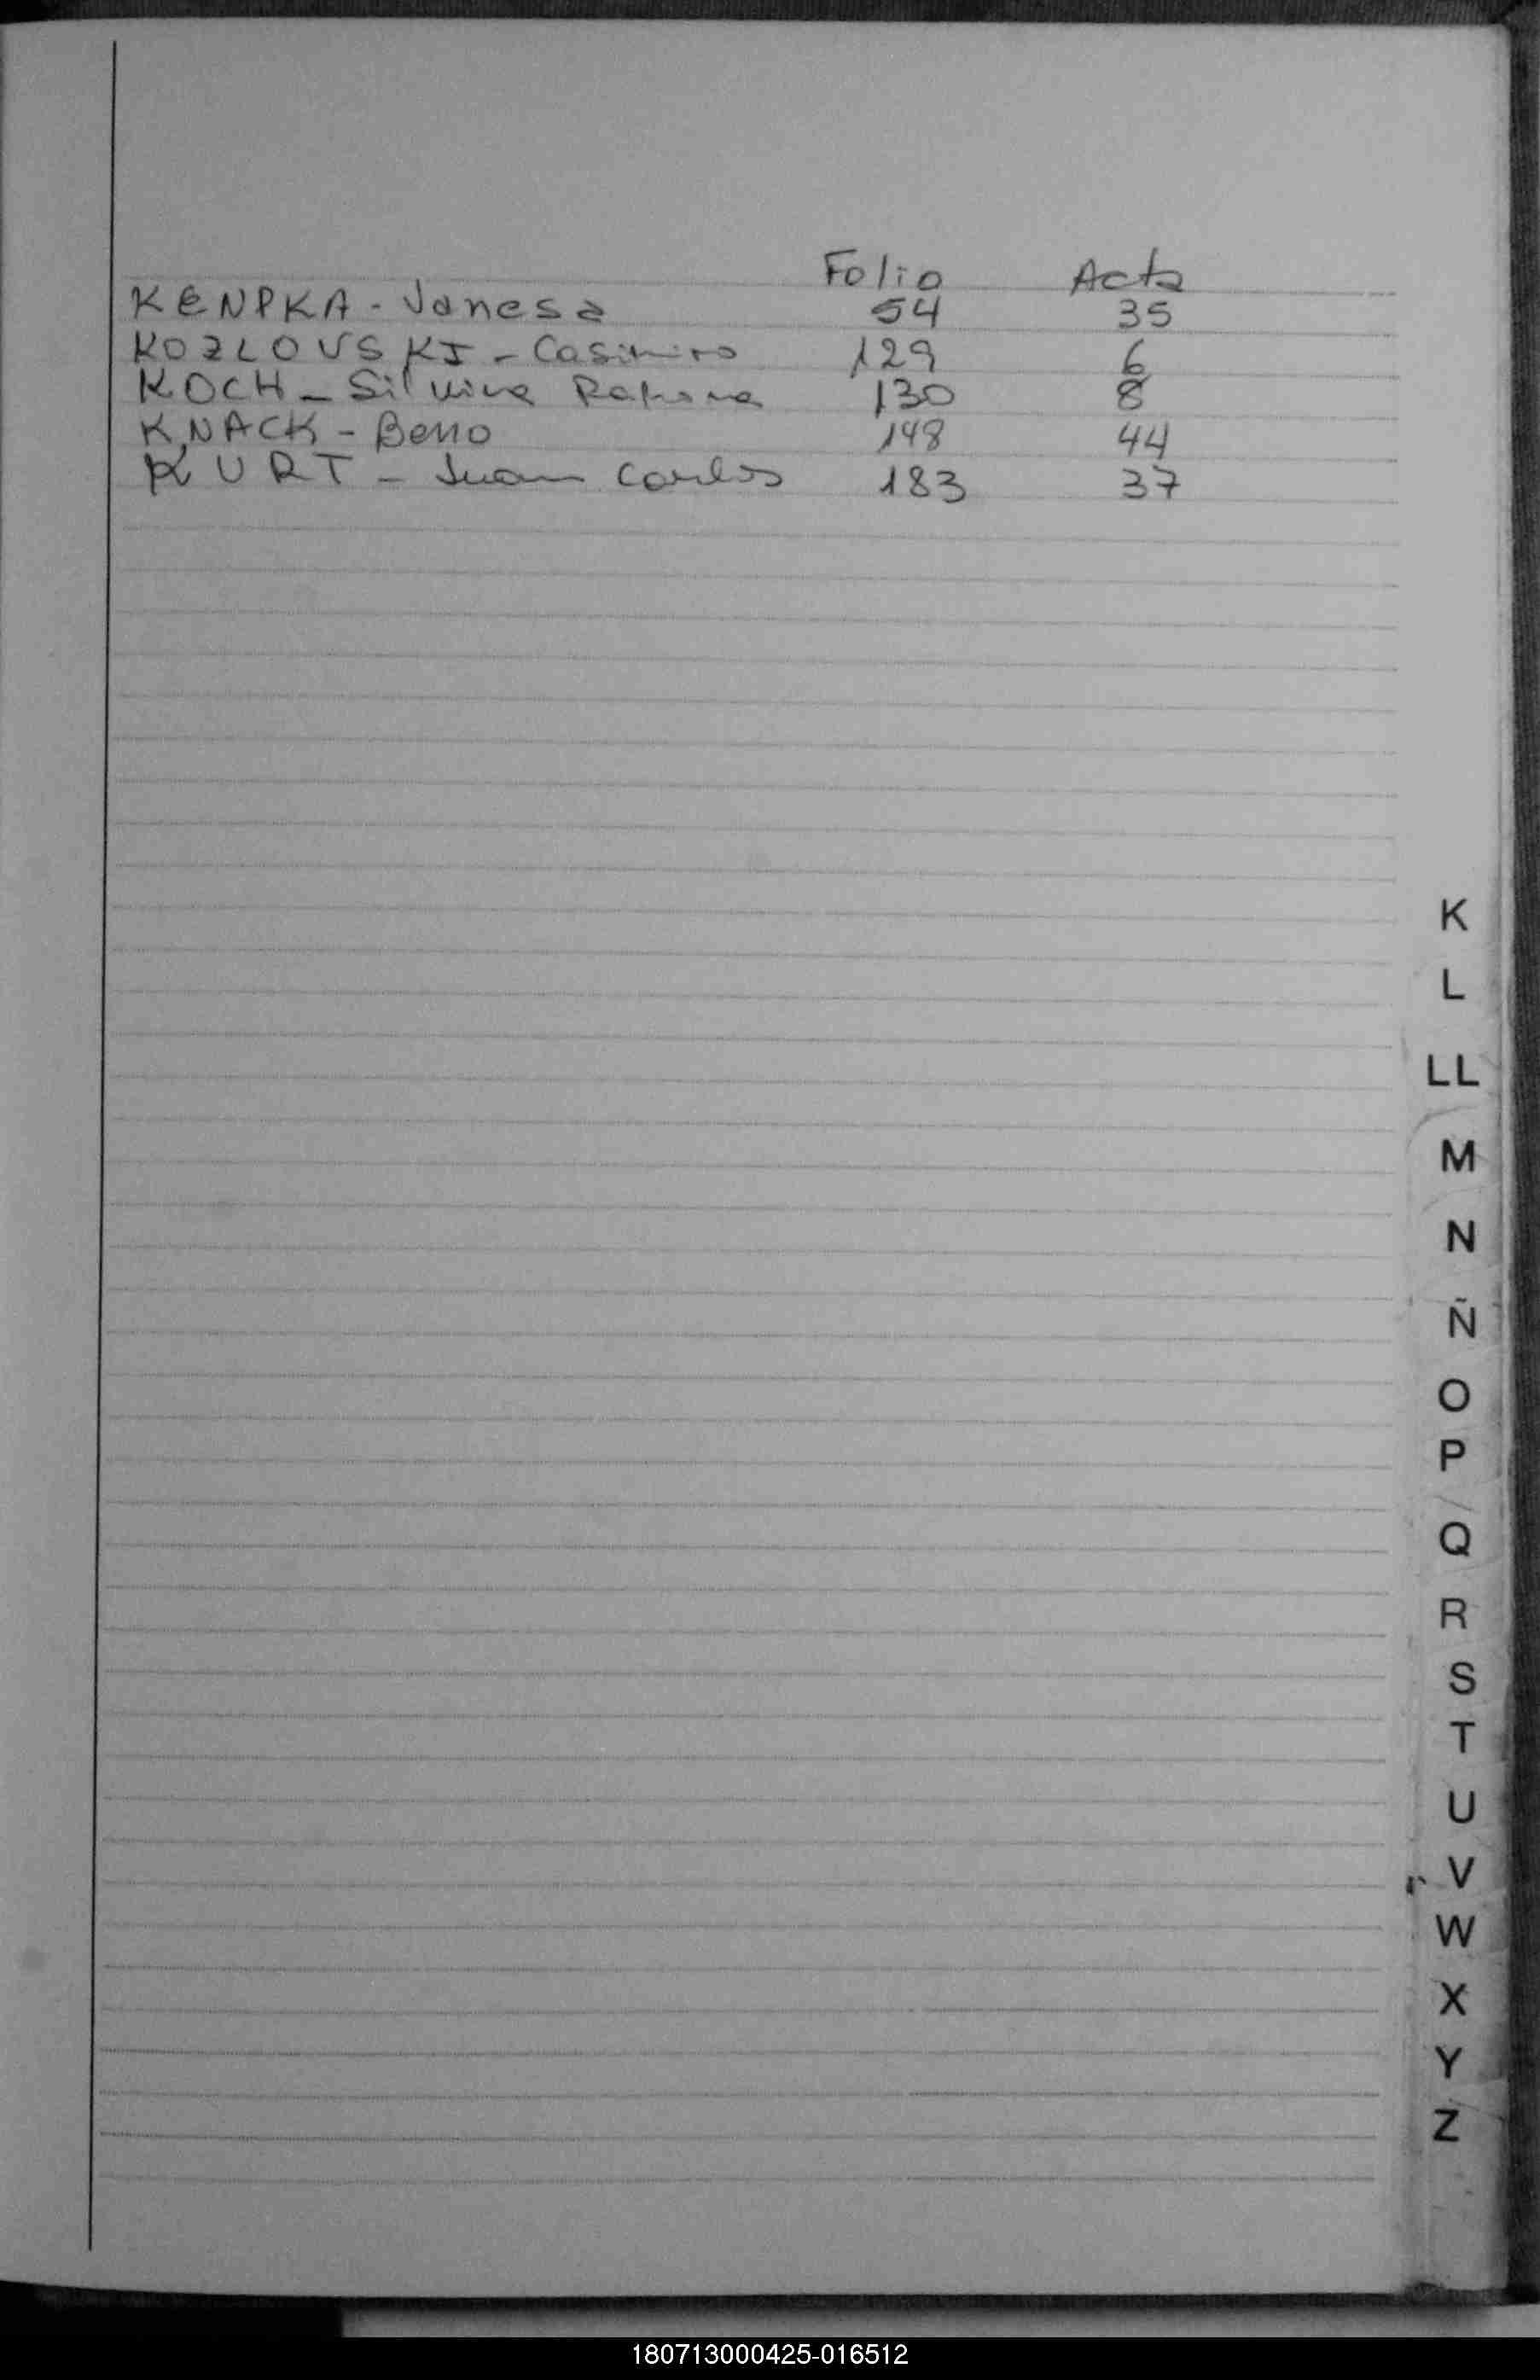 Folio Acta
KENPKA - Vanesa 54 35
KOZLOVSKI - Casimiro 129 6
KOCH - Silvina Ramona 130 8
KNACK - Benno 148 44
KURT - Juan Carlos 183 37
K
L
LL
M
N
Ñ
O
P
Q
R
S
T
U
V
W
X
Y
Z
180713000425-016512